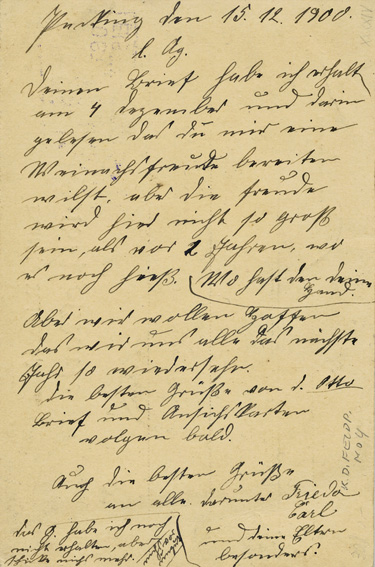 Peking den 15.12.1900.
l. Ag.
Deinen Brief habe ich erhalt
am 4 Dezember und darin
gelesen das du mir eine
Weinachsfreude bereiten
wilst, aber die freude
wird hier nicht so groß
sein, als vor 2 Jahren, wo
es noch hieß. Wo hast den deine
Hand.
Aber wir wollen hoffen
das wir uns alle das nächste
Jahr so wiedersehn.
die besten Grüße von d. Otto
Brief und Ansichskarten
volgen bald.
Auch die besten Grüße
an alle. darunter Frieda
Carl
und deine Eltern
besonders.
das P. habe ich noch
nicht erhalten, aber
schicke nichts mehr.
K.D. FELDP.
No 4